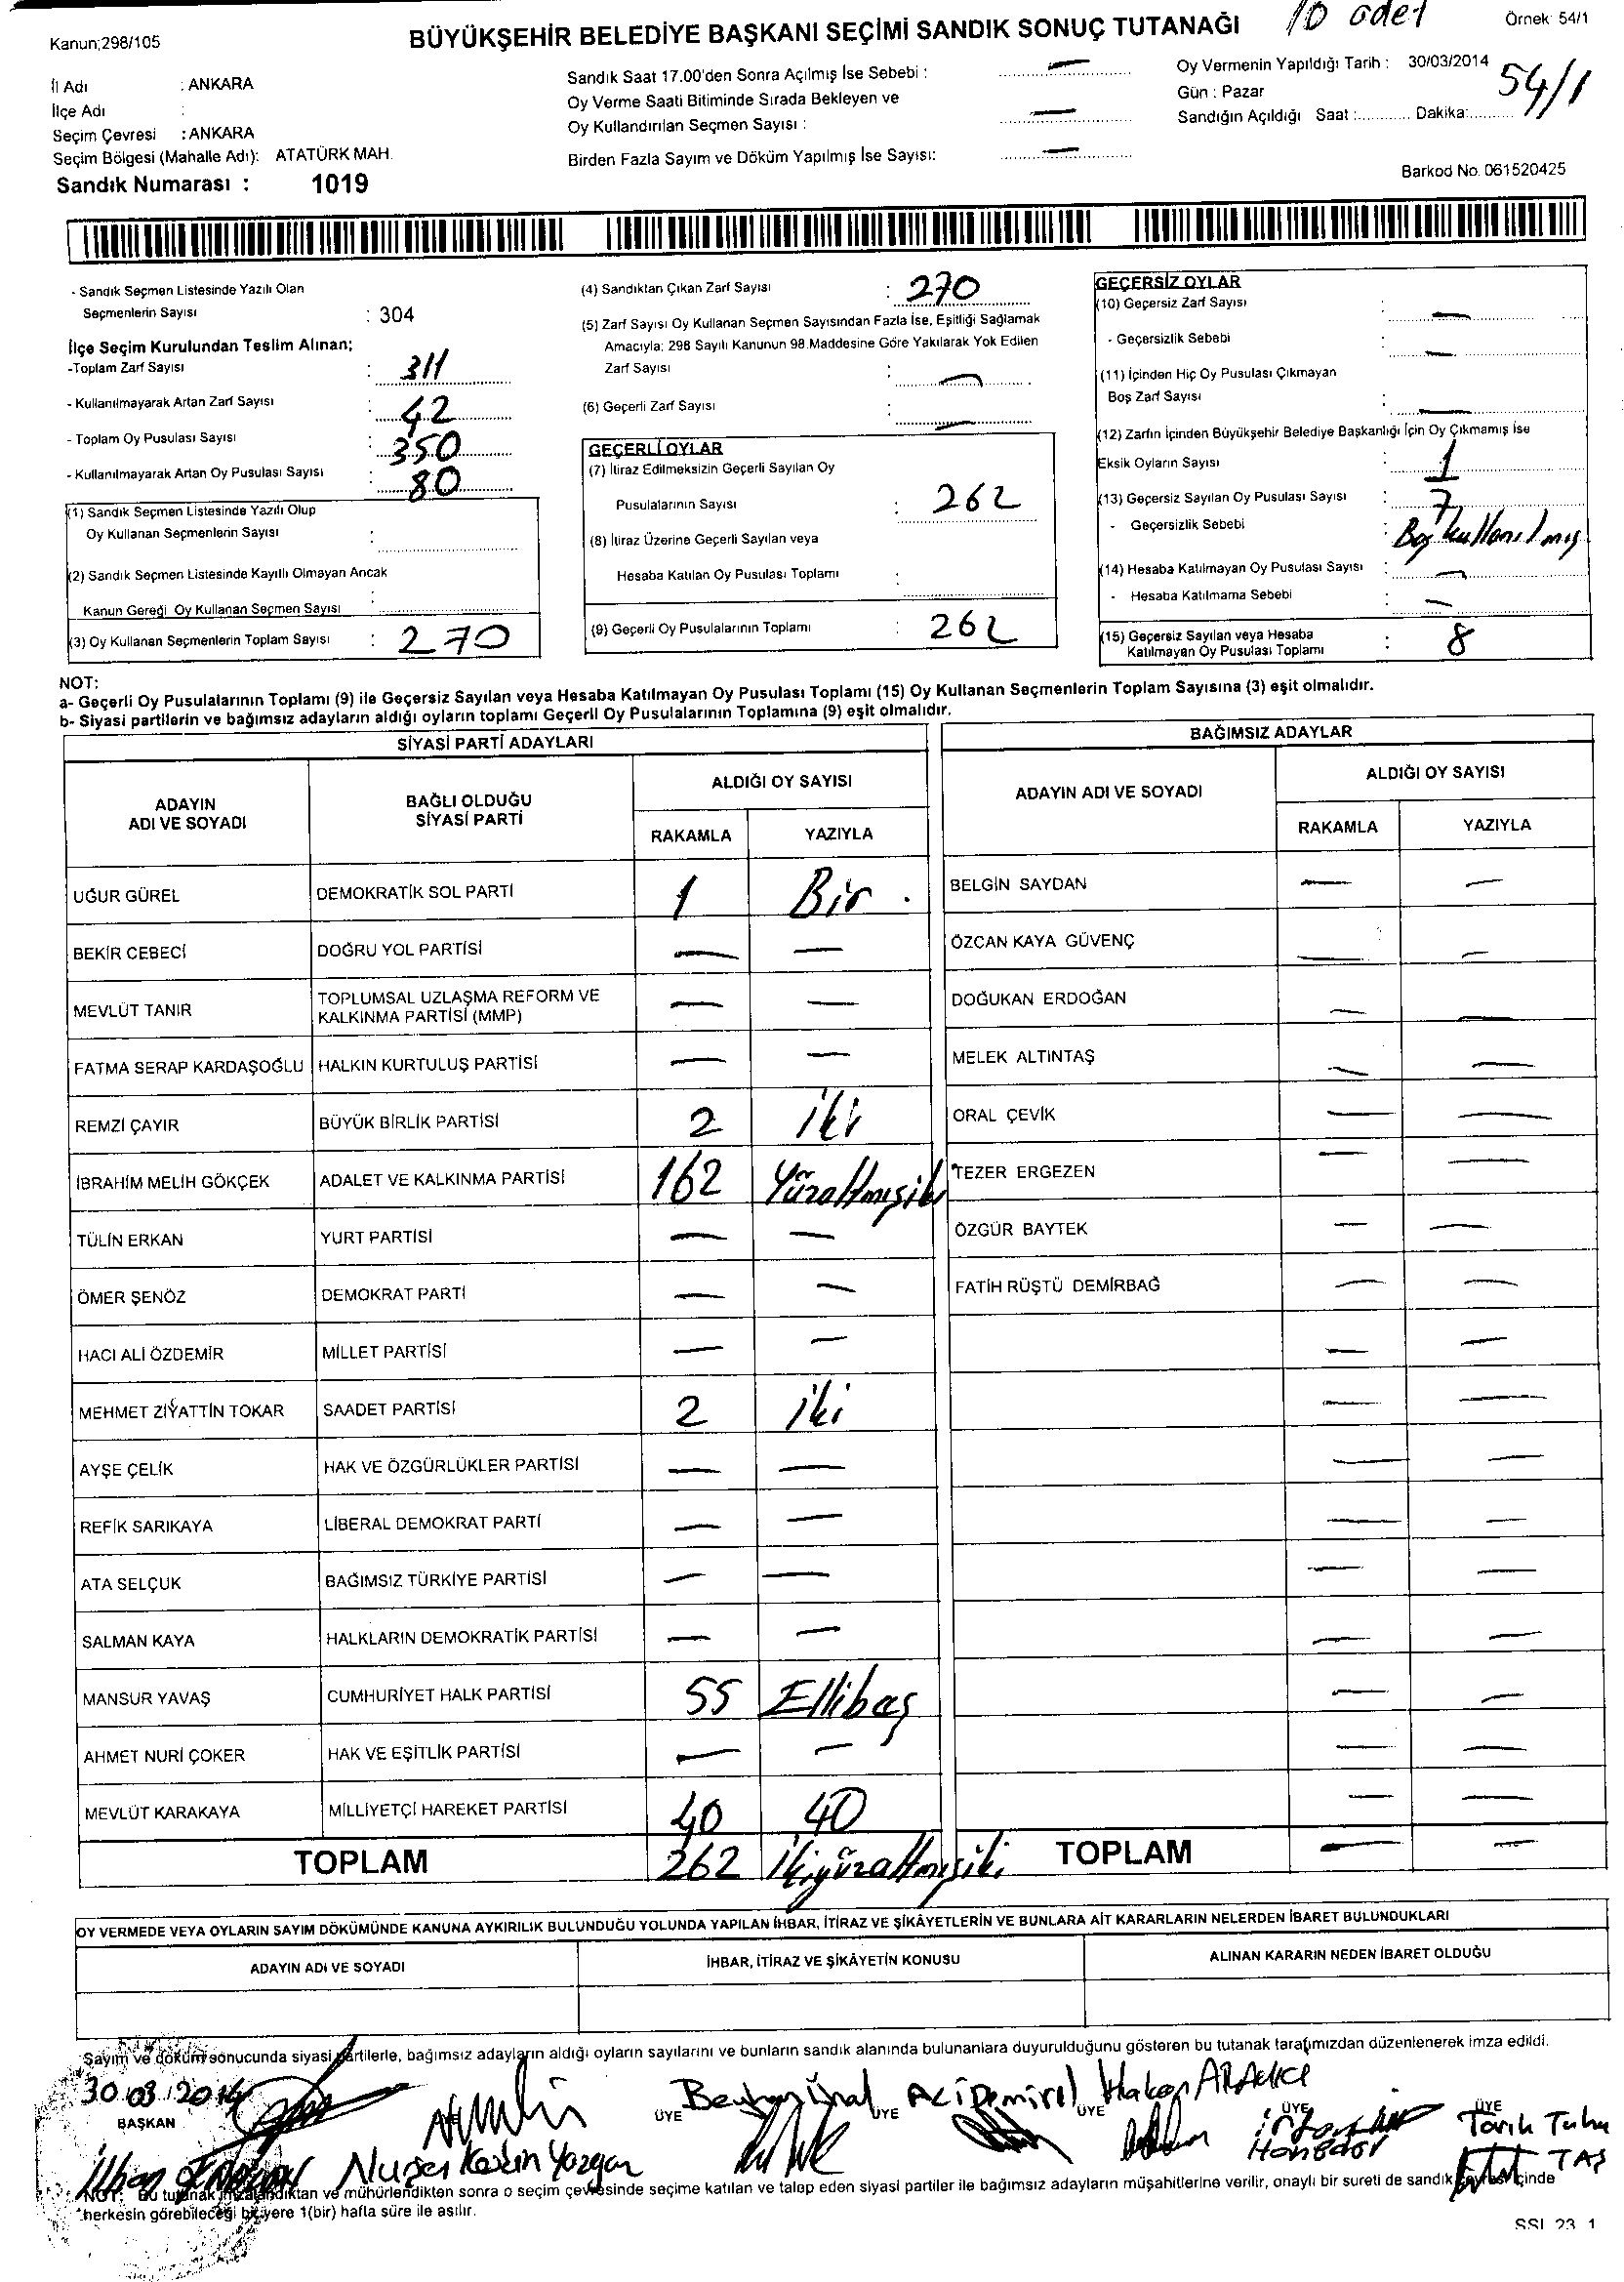 Kanun;298/105
BÜYÜKŞEHİR BELEDİYE BAŞKANI SEÇİMİ SANDIK SONUÇ TUTANAĞI
10 adet
Örnek: 54/1
İl Adı : ANKARA
İlçe Adı :
Seçim Çevresi : ANKARA
Seçim Bölgesi (Mahalle Adı): ATATÜRK MAH.
Sandık Numarası : 1019
Sandık Saat 17.00'den Sonra Açılmış İse Sebebi : —
Oy Verme Saati Bitiminde Sırada Bekleyen ve
Oy Kullandırılan Seçmen Sayısı : —
Birden Fazla Sayım ve Döküm Yapılmış İse Sayısı: —
Oy Vermenin Yapıldığı Tarih : 30/03/2014
54/1
Gün : Pazar
Sandığın Açıldığı Saat :............ Dakika:..........
Barkod No. 061520425
- Sandık Seçmen Listesinde Yazılı Olan
Seçmenlerin Sayısı : 304
İlçe Seçim Kurulundan Teslim Alınan;
-Toplam Zarf Sayısı : 311
- Kullanılmayarak Artan Zarf Sayısı : 42
- Toplam Oy Pusulası Sayısı : 350
- Kullanılmayarak Artan Oy Pusulası Sayısı : 80
(1) Sandık Seçmen Listesinde Yazılı Olup
Oy Kullanan Seçmenlerin Sayısı :
(2) Sandık Seçmen Listesinde Kayıllı Olmayan Ancak
Kanun Gereği Oy Kullanan Seçmen Sayısı :
(3) Oy Kullanan Seçmenlerin Toplam Sayısı : 270
(4) Sandıktan Çıkan Zarf Sayısı : 270
(5) Zarf Sayısı Oy Kullanan Seçmen Sayısından Fazla İse, Eşitliği Sağlamak
Amacıyla; 298 Sayılı Kanunun 98.Maddesine Göre Yakılarak Yok Edilen
Zarf Sayısı : —
(6) Geçerli Zarf Sayısı : —
GEÇERLİ OYLAR
(7) İtiraz Edilmeksizin Geçerli Sayılan Oy
Pusulalarının Sayısı : 262
(8) İtiraz Üzerine Geçerli Sayılan veya
Hesaba Katılan Oy Pusulası Toplamı :
(9) Geçerli Oy Pusulalarının Toplamı : 262
GEÇERSİZ OYLAR
(10) Geçersiz Zarf Sayısı : —
- Geçersizlik Sebebi : —
(11) İçinden Hiç Oy Pusulası Çıkmayan
Boş Zarf Sayısı : —
(12) Zarfın İçinden Büyükşehir Belediye Başkanlığı İçin Oy Çıkmamış İse
Eksik Oyların Sayısı : 1
(13) Geçersiz Sayılan Oy Pusulası Sayısı : 7
- Geçersizlik Sebebi : Boş kullanılmış
(14) Hesaba Katılmayan Oy Pusulası Sayısı : —
- Hesaba Katılmama Sebebi : —
(15) Geçersiz Sayılan veya Hesaba
Katılmayan Oy Pusulası Toplamı : 8
NOT:
a- Geçerli Oy Pusulalarının Toplamı (9) ile Geçersiz Sayılan veya Hesaba Katılmayan Oy Pusulası Toplamı (15) Oy Kullanan Seçmenlerin Toplam Sayısına (3) eşit olmalıdır.
b- Siyasi partilerin ve bağımsız adayların aldığı oyların toplamı Geçerli Oy Pusulalarının Toplamına (9) eşit olmalıdır.
SİYASİ PARTİ ADAYLARI
ADAYIN ADI VE SOYADI
BAĞLI OLDUĞU SİYASİ PARTİ
ALDIĞI OY SAYISI
RAKAMLA YAZIYLA
UĞUR GÜREL DEMOKRATİK SOL PARTİ 1 Bir
BEKİR CEBECİ DOĞRU YOL PARTİSİ — —
MEVLÜT TANIR TOPLUMSAL UZLAŞMA REFORM VE KALKINMA PARTİSİ (MMP) — —
FATMA SERAP KARDAŞOĞLU HALKIN KURTULUŞ PARTİSİ — —
REMZİ ÇAYIR BÜYÜK BİRLİK PARTİSİ 2 iki
İBRAHİM MELİH GÖKÇEK ADALET VE KALKINMA PARTİSİ 162 Yüzaltmışiki
TÜLİN ERKAN YURT PARTİSİ — —
ÖMER ŞENÖZ DEMOKRAT PARTİ — —
HACI ALİ ÖZDEMİR MİLLET PARTİSİ — —
MEHMET ZİYATTİN TOKAR SAADET PARTİSİ 2 iki
AYŞE ÇELİK HAK VE ÖZGÜRLÜKLER PARTİSİ — —
REFİK SARIKAYA LİBERAL DEMOKRAT PARTİ — —
ATA SELÇUK BAĞIMSIZ TÜRKİYE PARTİSİ — —
SALMAN KAYA HALKLARIN DEMOKRATİK PARTİSİ — —
MANSUR YAVAŞ CUMHURİYET HALK PARTİSİ 55 Ellibeş
AHMET NURİ ÇOKER HAK VE EŞİTLİK PARTİSİ — —
MEVLÜT KARAKAYA MİLLİYETÇİ HAREKET PARTİSİ 40 40
TOPLAM 262 İkiyüzaltmışiki
BAĞIMSIZ ADAYLAR
ADAYIN ADI VE SOYADI
ALDIĞI OY SAYISI
RAKAMLA YAZIYLA
BELGİN SAYDAN — —
ÖZCAN KAYA GÜVENÇ — —
DOĞUKAN ERDOĞAN — —
MELEK ALTINTAŞ — —
ORAL ÇEVİK — —
TEZER ERGEZEN — —
ÖZGÜR BAYTEK — —
FATİH RÜŞTÜ DEMİRBAĞ — —
TOPLAM — —
OY VERMEDE VEYA OYLARIN SAYIM DÖKÜMÜNDE KANUNA AYKIRILIK BULUNDUĞU YOLUNDA YAPILAN İHBAR, İTİRAZ VE ŞİKÂYETLERİN VE BUNLARA AİT KARARLARIN NELERDEN İBARET BULUNDUKLARI
ADAYIN ADI VE SOYADI
İHBAR, İTİRAZ VE ŞİKÂYETİN KONUSU
ALINAN KARARIN NEDEN İBARET OLDUĞU
Sayım ve döküm sonucunda siyasi partilerle, bağımsız adayların aldığı oyların sayılarını ve bunların sandık alanında bulunanlara duyurulduğunu gösteren bu tutanak tarafımızdan düzenlenerek imza edildi.
30.03.2014
BAŞKAN
İlhan
Nuger Yozgar
ÜYE
ÜYE
Hakan
ÜYE
ÜYE
ÜYE
Tarık Tuhu
TAŞ
NOT: Bu tutanak imzalandıktan ve mühürlendikten sonra o seçim çevresinde seçime katılan ve talep eden siyasi partiler ile bağımsız adayların müşahitlerine verilir, onaylı bir sureti de sandık çevresi içinde
herkesin görebileceği bir yere 1(bir) hafta süre ile asılır.
SSI 23 1